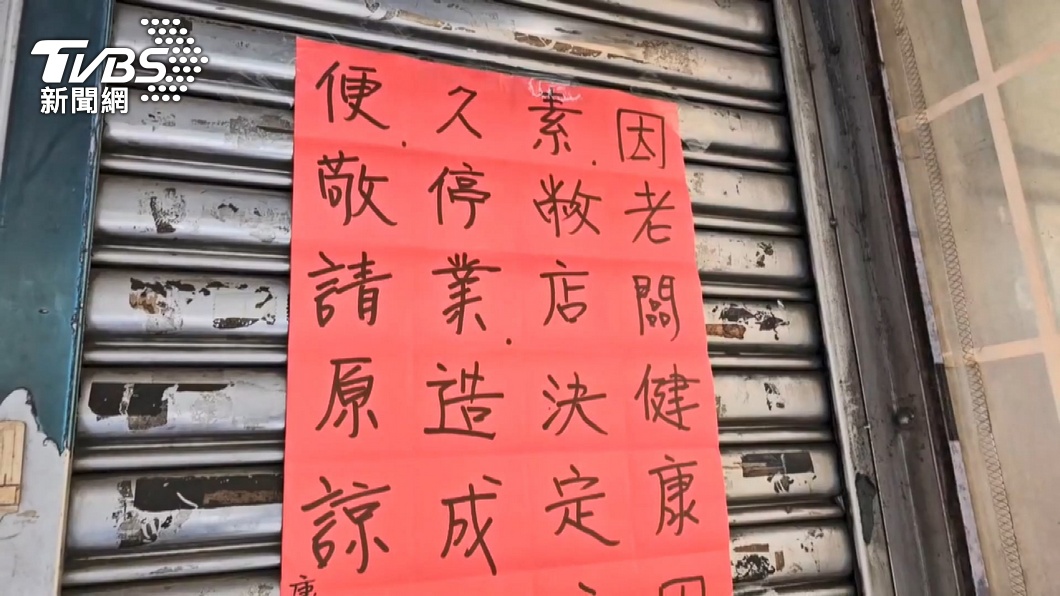 TVBS
新聞網
因老闆健康
素.敝店決定
久停業.造成
便.敬請原諒